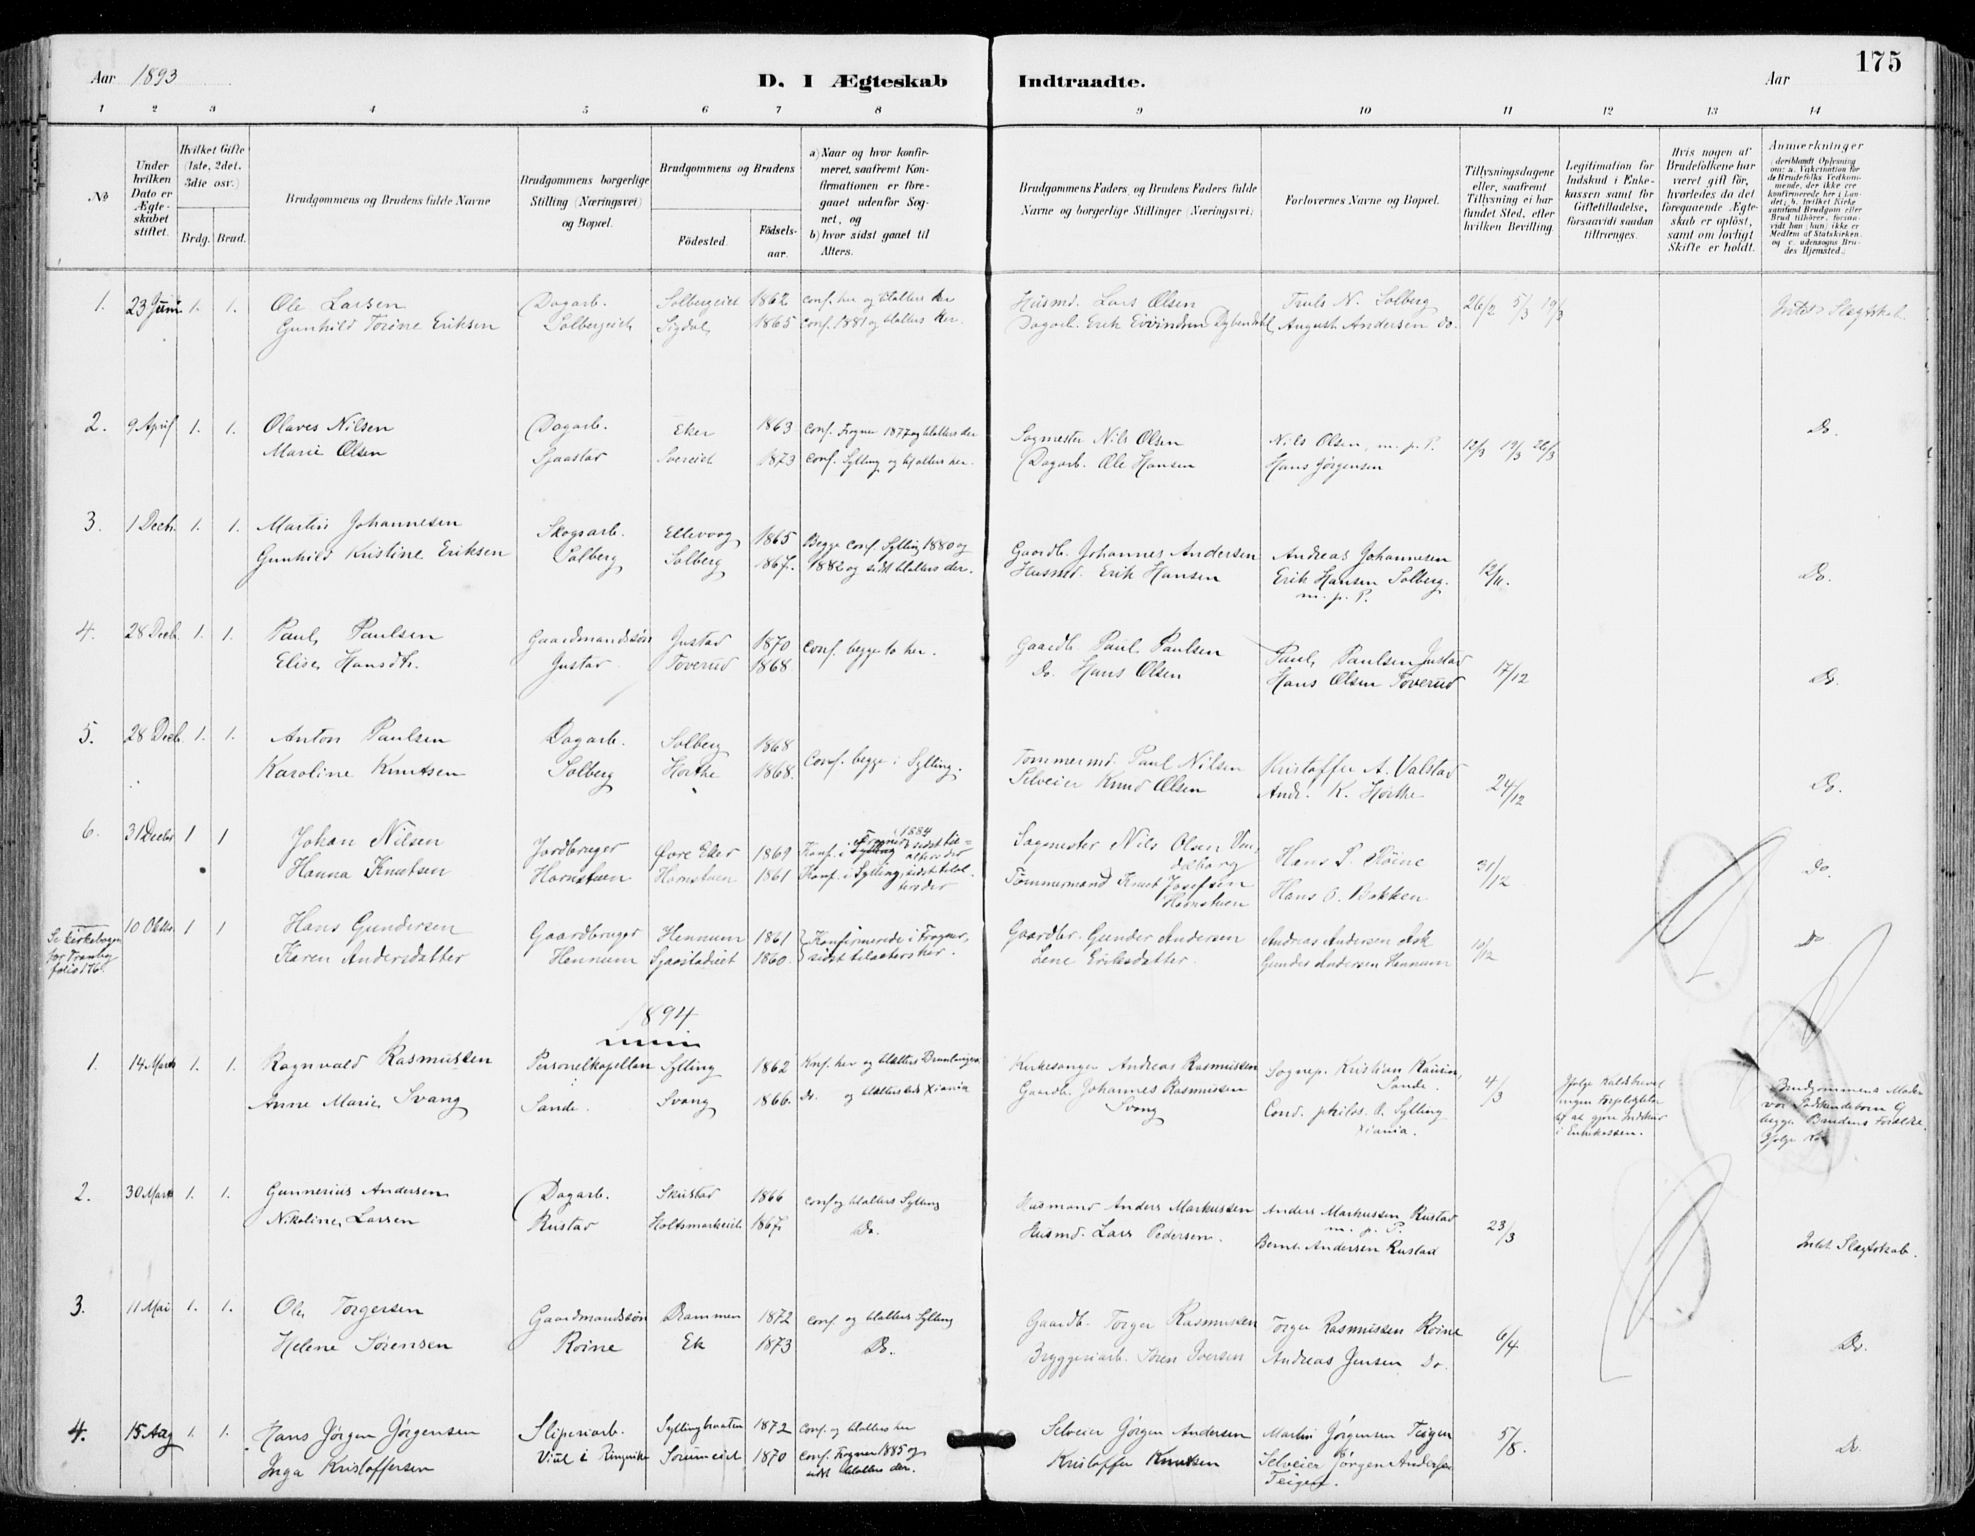 175
Aar 1893 D. I Ægteskab Indtraadte. Aar
1 2 3 4 5 6 7 8 9 10 11 12 13 14
No
Under hvilken Dato er Ægteskabet stiftet.
Hvilket Gifte (1ste, 2det, 3die osv.)
Brdg. Brud.
Brudgommens og Brudens fulde Navne
Brudgommens borgerlige Stilling (Næringsvei) og Bopæl.
Brudgommens og Brudens
Fødested. Fødselsaar.
a) Naar og hvor konfirmeret, saafremt Konfirmationen er foregaaet udenfor Sognet, og
b) hvor sidst gaaet til Alters.
Brudgommens Faders, og Brudens Faders fulde Navne og borgerlige Stillinger (Næringsvei)
Forlovernes Navne og Bopæl.
Tillysningsdagene eller, saafremt Tillysning ei har fundet Sted, efter hvilken Bevilling.
Legitimation for Indskud i Enkekassen samt for Giftetilladelse, forsaavidt saadan tiltrænges.
Hvis nogen af Brudefolkene har været gift før, hvorledes da det foregaaende Ægteskab er opløst, samt om lovligt Skifte er holdt.
Anmærkninger (deriblandt Oplysning om: a. Vakcination for de Brudefolks Vedkommende, der ikke ere konfirmerede her i Landet; b. hvilket Kirkesamfund Brudgom eller Brud tilhører, forsaavidt han (hun) ikke er Medlem af Statskirken, og c. udensogns Brudes Hjemsted.)
1. 23 Juni 1. 1. Ole Larsen Dagarb. Solbergeiet 1862 conf. her og altters her Husmd. Lars Olsen Truls N. Solberg 26/2 5/3 19/3 Intet Slægtskab
Gunhild Torine Eriksen Solbergeiet Sigdal 1865 conf. 1881 og altters her. Dagarb. Erik Eivindsen August Andersen do.
2. 9 April 1. 1. Olaves Nilsen Dagarb. Eker 1863 conf. Frogner 1877 og altters der Sagmester Nils Olsen Nils Olsen, m. p. P. 12/3 19/3 26/3 Do.
Marie Olsen Sjaastad 1873 conf. Sylling og altters her. Dagarb. Ole Hansen Hans Jørgensen
3. 1 Decb. 1. 1. Martin Johannesen Skogsarb. Ellevoog 1865 Begge conf. Sylling 1880 og Gaardb. Johannes Andersen Andreas Johannesen 12/11. Do.
Gunhild Kristine Eriksen Solberg Solberg 1867. 1882 og sidst altters der. Husmd. Erik Hansen Erik Hansen Solberg
m. p. P.
4. 28 Decb. 1. 1. Paul Paulsen Gaardmandssøn Justad 1870 conf. begge to her. Gaardb. Paul Paulsen Paul Paulsen Justad 17/12 Do.
Elise Hansdtr. Justad Toverud 1868 Do. Hans Olsen Hans Olsen Toverud
5. 28 Decb. 1. 1. Anton Paulsen Dagarb. Solberg 1868 conf. begge i Sylling. Tømmermd. Paul Nilsen Kristoffer A. Valstad 24/12 Do.
Karoline Knutsen Solberg Hørthe 1868. Selveier Knud Olsen Andr. K. Hørthe
6. 31 Decbr 1 1 Johan Nilsen Jordbruger Øvre Eker 1869 Konf. i Frogner 1884 sidst til alters der Sagmester Nils Olsen Hans P. Røine 31/12 Do.
Hanna Knutsen Hornstuen Hornstuen 1861 Konf. i Sylling, sidst til alters der Tømmermand Knut Josefsen Hornstuen Hans O. Bakken
Se kirkebogen for Tranby folio 176 10 Oktbr 1 1 Hans Gundersen Gaardbruger Hennum 1861 Konfirmerede i Frogner, Gaardbr. Gunder Andersen Andreas Andersen Ask 10/12 do
Karen Andersdatter Hennum Sjaastadeiet 1860 sidst til alters her. Lene Eriksdatter. Gunder Andersen Hennum
1894
1. 14 Marts 1. 1. Ragnvald Rasmussen Personelkapellan Sylling 1862 Konf. her og altters Kirkesanger Andreas Rasmussen Sognep. Kristian 4/3
Anne Marie Svang Sande. Svang 1866. Do. og altters Xiania Gaardb. Johannes Rasmussen Svang Cand. philos. O. Sylling Xiania.
Sande.
i Enkekassen.
Brudgommens Moder var Sødskendebarn af begge Brudens Forældre.
2. 30 Marts 1. 1. Gunnerius Andersen Dagarb. Skustad 1866 conf og altters Sylling Husmand Anders Markussen Anders Markussen Rustad m. p. P. 23/3 Intet Slægtskab.
Nikoline Larsen Rustad Holtsmarkeiet 1867 Do. Husmd. Lars Pedersen. Bernt Andersen Rustad
3. 11 Mai 1. 1. Ole Torgersen Gaardmandssøn Drammen 1872 conf. og altters Sylling Gaardb. Torger Rasmussen Torger Rasmussen Roine 6/4 Do.
Helene Sørensen Roine Ek 1873 Do. Bryggeriarb. Søren Iversen Andreas Jensen do.
4. 15 Aug 1. 1. Hans Jørgen Jørgensen Sliperiarb. Syllingbraaten 1872 conf. og altters her Selveier Jørgen Andersen Martin Jørgensen Teigen 5/8. Do.
Inga Kristoffersen Viul i Ringerike Sørumeiet 1870 conf. Frogner 1885 og sidst altters der. Kristoffer Knutsen Selveier Jørgen Andersen Teigen.